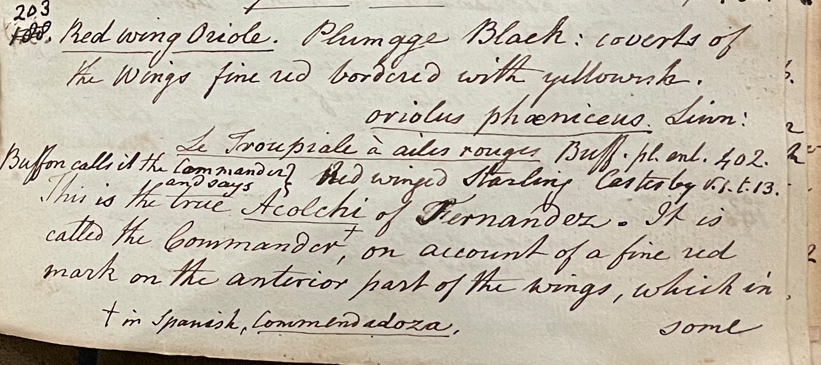 203
188. Red wing Oriole. Plumage Black: coverts of
the Wings fine red bordered with yellowish.
oriolus phæniceus. Linn:
Le Troupiale à ailes rouges Buff. pl. enl. 402.
Buffon calls it the Commander
and says
Red winged Starling Catesby v.1.t.13.
This is the true Acolchi of Fernandez. It is
called the Commander†, on account of a fine red
mark on the anterior part of the wings, which in
† in Spanish, Commendadoza.
some